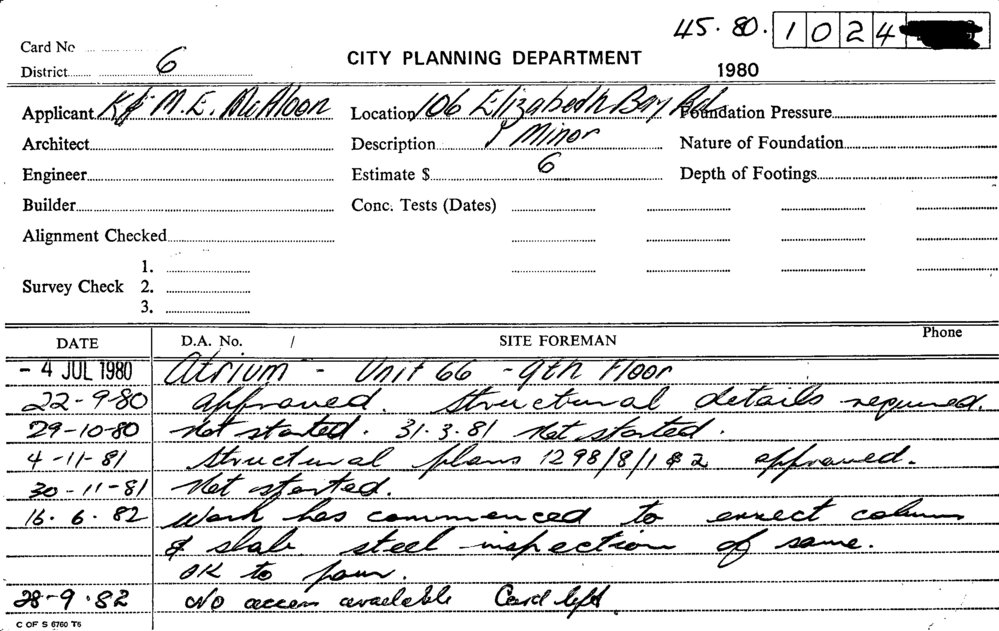 45. 80. 1024
Card No
District 6
CITY PLANNING DEPARTMENT
1980
Applicant K & M. E. McAloon Location 106 Elizabeth Bay Rd Foundation Pressure
Architect Description Minor Nature of Foundation
Engineer Estimate $ 6 Depth of Footings
Builder Conc. Tests (Dates)
Alignment Checked
1.
Survey Check 2.
3.
DATE D.A. No. / SITE FOREMAN Phone
- 4 JUL 1980 Atrium - Unit 66 - 9th Floor
22-9-80 approved. Structural details required.
29-10-80 Not started. 31.3.81 Not started.
4-11-81 Structural plans 1298/8/1 & 2 approved.
30-11-81 Not started.
16.6.82 Work has commenced to errect column
& slab steel inspection of same.
OK to pour.
28-9.82 No access available Card left.
C OF S 6760 T6